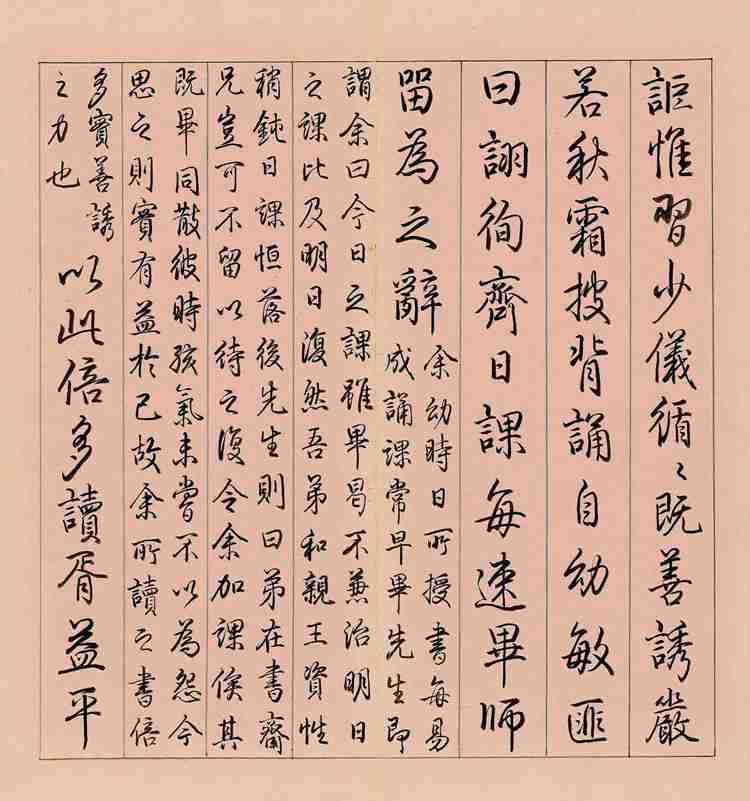 詎惟習少儀循〻既善誘嚴
若秋霜披背誦自幼敏匪
曰詡徇齊日課每速畢師
留為之辭
余幼時日所授書每易
成誦課常早畢先生即
謂余曰今日之課雖畢曷不兼治明日
之課比及明日復然吾弟和親王資性
稍鈍日課恒落後先生則曰弟在書齋
兄豈可不留以待之復令余加課俟其
既畢同散彼時孩氣未嘗不以為怨今
思之則實有益於己故余所讀之書倍
多實善誘
之力也
以此倍多讀胥益平